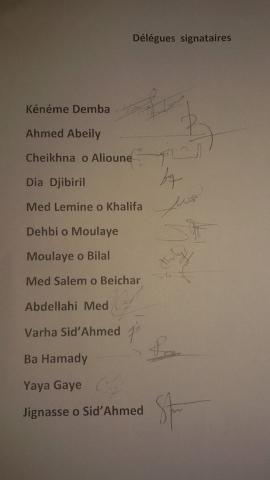 Délégues signataires
Kénéme Demba
Ahmed Abeily
Cheikhna o Alioune
Dia Djibiril
Med Lemine o Khalifa
Dehbi o Moulaye
Moulaye o Bilal
Med Salem o Beichar
Abdellahi Med
Varha Sid'Ahmed
Ba Hamady
Yaya Gaye
Jignasse o Sid'Ahmed